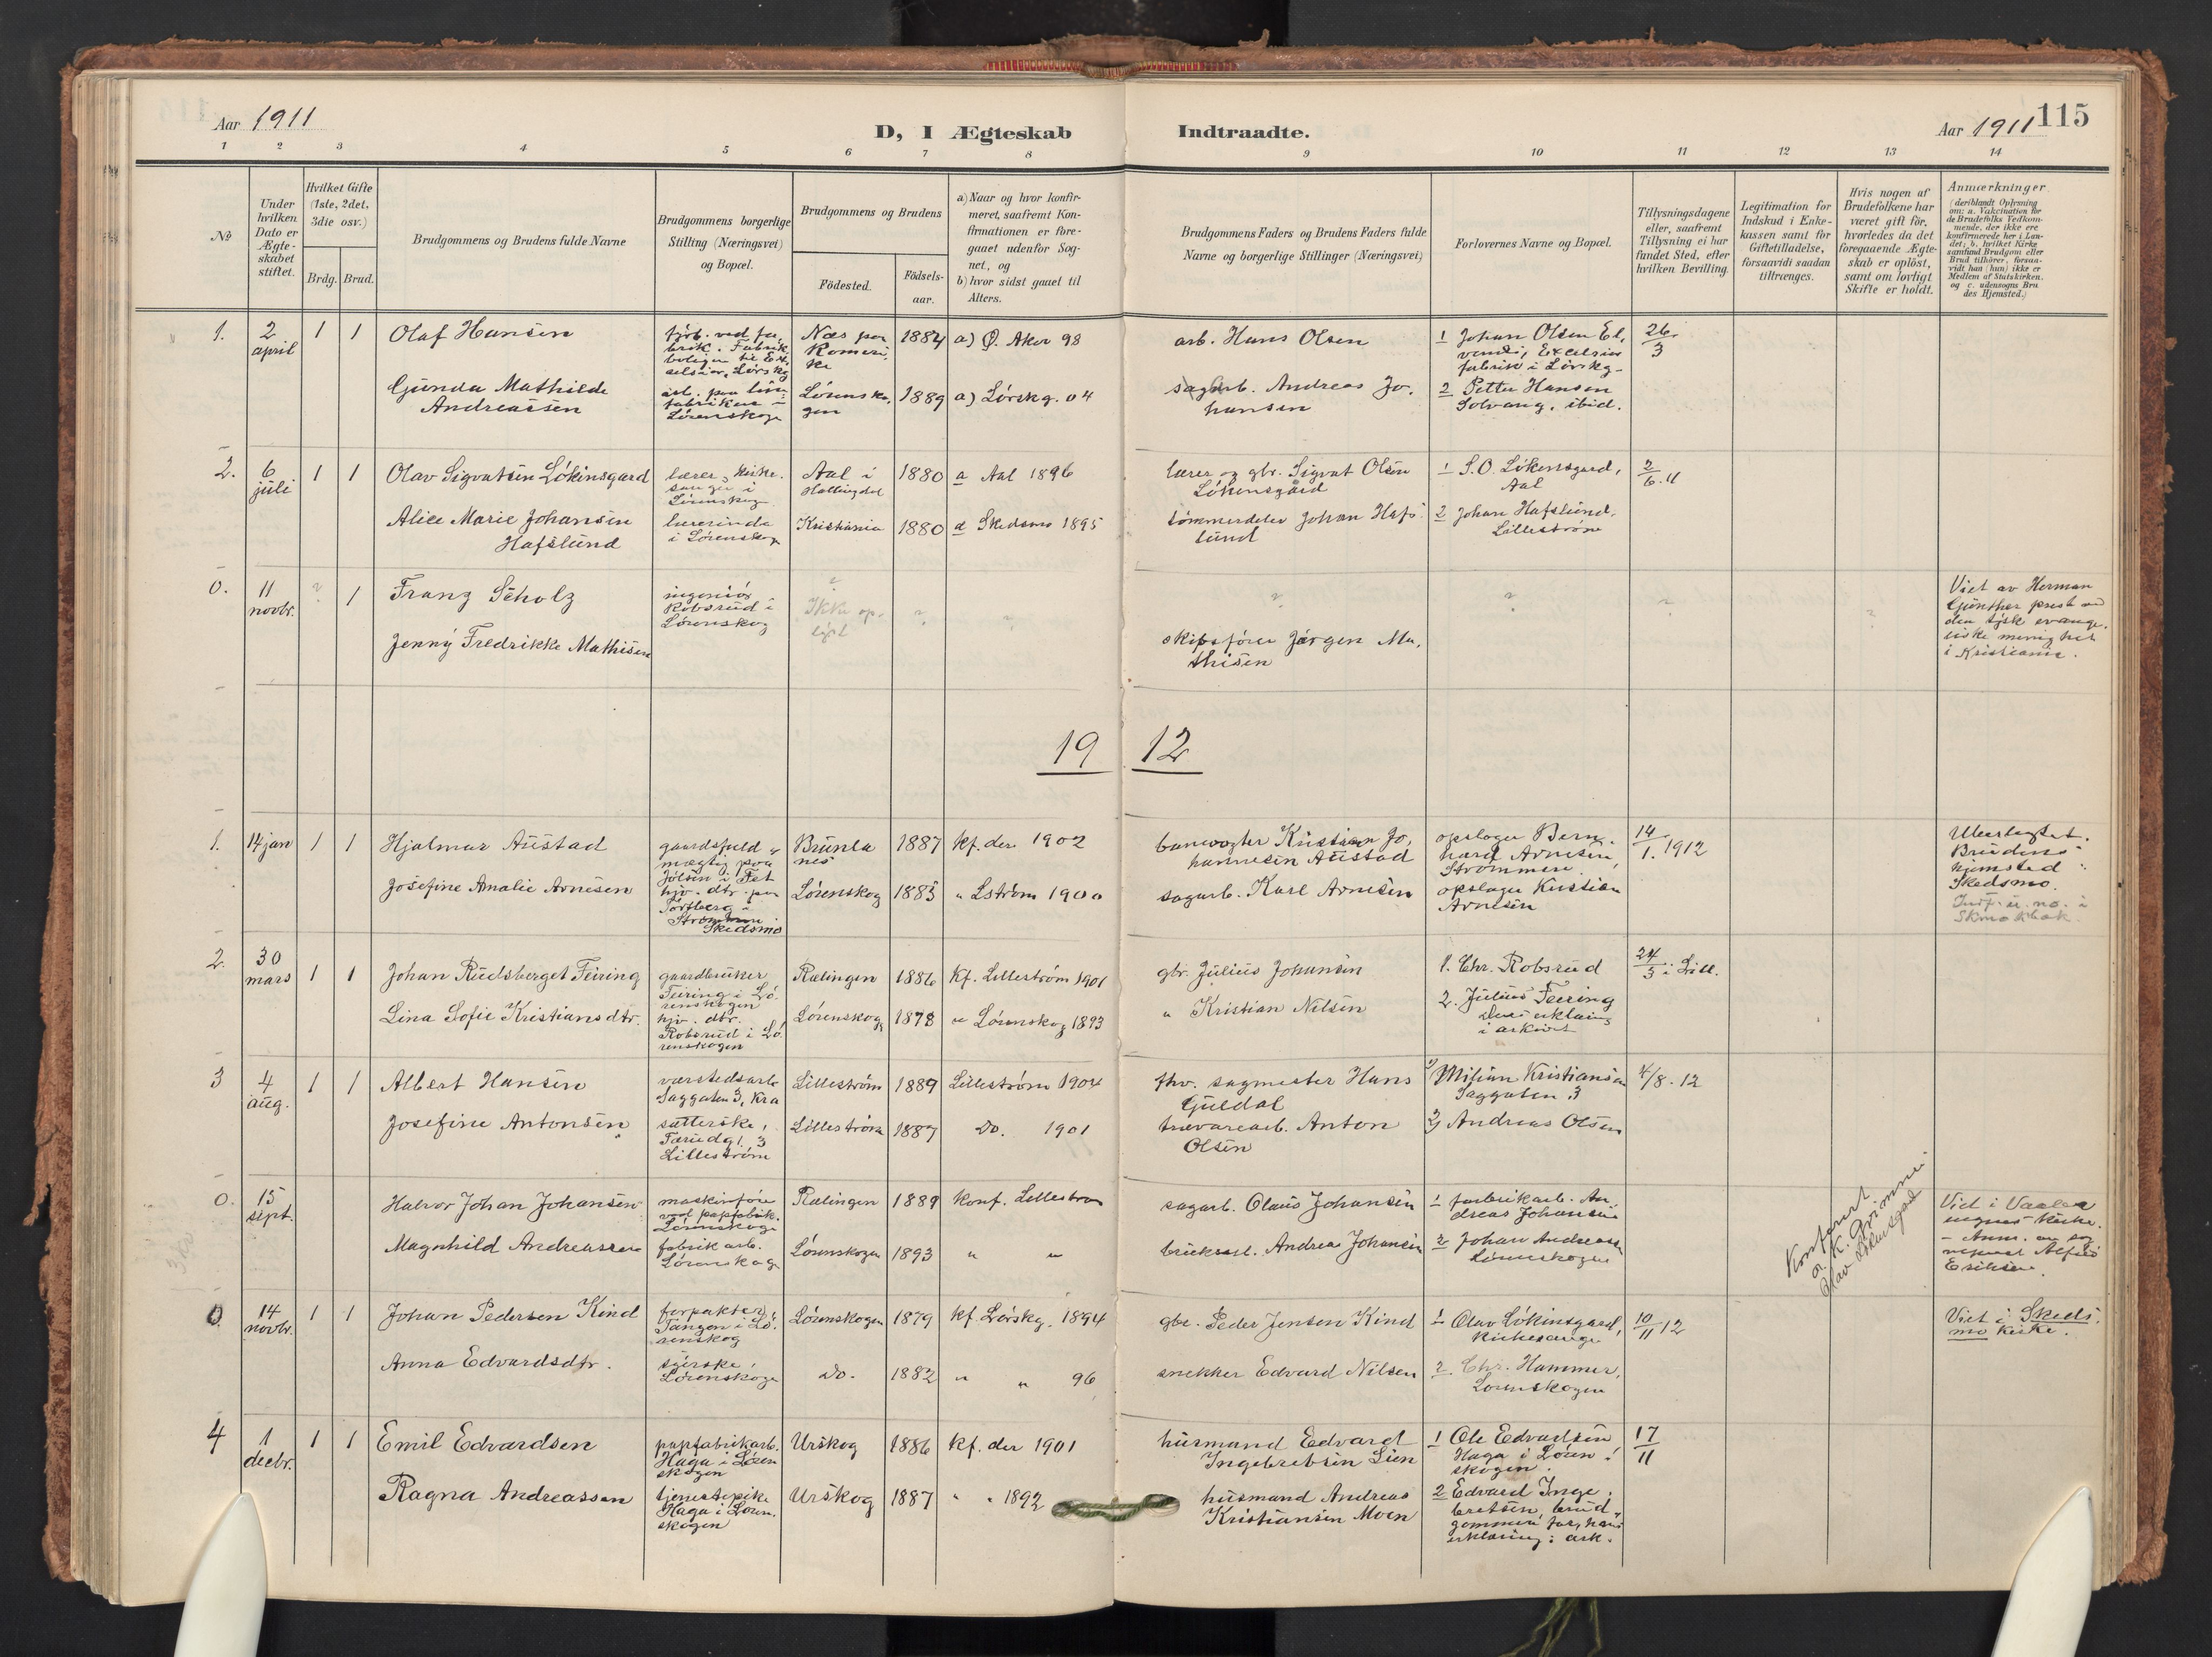 Aar 1911
D, I Ægteskab Indtraadte.
Aar 1911 115
1 2 3 4 5 6 7 8 9 10 11 12 13 14
№
Under hvilken Dato er Ægteskabet stiftet.
Hvilket Gifte (1ste, 2det, 3die osv.)
Brdg. Brud.
Brudgommens og Brudens fulde Navne
Brudgommens borgerlige Stilling (Næringsvei) og Bopæl.
Brudgommens og Brudens
Födested. Födselsaar.
a) Naar og hvor konfirmeret, saafremt Konfirmationen er foregaaet udenfor Sognet, og
b) hvor sidst gaaet til Alters.
Brudgommens Faders og Brudens Faders fulde Navne og borgerlige Stillinger (Næringsvei)
Forlovernes Navne og Bopæl.
Tillysningsdagene eller, saafremt Tillysning ei har fundet Sted, efter hvilken Bevilling.
Legitimation for Indskud i Enkekassen samt for Giftetilladelse, forsaavidt saadan tiltrænges.
Hvis nogen af Brudefolkene har været gift för, hvorledes da det foregaaende Ægteskab er oplöst, samt om lovligt Skifte er holdt.
Anmærkninger
(deriblandt Oplysning om: a. Vakcination for de Brudefolks Vedkommende, der ikke ere konfirmerede her i Landet; b. hvilket Kirkesamfund Brudgom eller Brud tilhörer, forsaavidt han (hun) ikke er Medlem af Statskirken. og c. udensogns Brudes Hjemsted.)
1. 2 april 1 1 Olaf Hansen
Næs paa Romerike 1884 a) Ø. Aker 98
arb. Hans Olsen
1 Johan Olsen
fabrik i Lørskg.
26/3
Gunda Mathilde Andreassen
Lørenskogen 1889 a) Lørskg. 04
sagarb. Andreas Johansen
2 Petter Hansen Solvang, ibid.
2. 6 juli 1 1 Olav Sigvatsen Lökensgard
lærer, kirkesanger i Lørenskog
Aal i Hallingdal 1880 a Aal 1896
lærer og gbr. Sigvat Olsen Løkensgård
1 S.O. Lökensgard, Aal
2/6.11
Alice Marie Johansen Hafslund
lærerinde i Lørenskog
Kristiania 1880 a Skedsmo 1895
tømmerdeler Johan Hafslund
2 Johan Hafslund, Lillestrøm
0. 11 novbr. ? 1 Franz Scholz
ingeniör Robsrud i Lørenskog
? Ikke oplyst ? ? ? ? ? ?
Viet av Herman Günther prest ved den tysk evangeliske menighet i Kristiania.
Jenny Fredrikke Mathisen
skibsfører Jørgen Mathisen
19 12
1. 14 jan 1 1 Hjalmar Austad
gaardsfuldmægtig paa Jölsen i Fet
Brunlanes 1887 kf. der 1902
banevogter Kristian Johannesen Austad
opslager Bernhard Arnesen, Strømmen
14/1. 1912
Brudens hjemsted: Skedsmo.
Josefine Amalie Arnesen
hjv. dtr. paa
Strømmen i Skedsmo
Lørenskog 1883 " Lstrøm 1900
sagarb. Karl Arnesen
opslager Kristian Arnesen
2. 30 mars 1 1 Johan Rudsberget Feiring
gaardbruker Feiring i Lörenskogen
Rælingen 1886 Kf. Lillestrøm 1901
gbr. Julius Johansen
1. Chr. Robsrud
24/3 i Lill.
Lina Sofie Kristiansdtr.
hjv. dtr. Robsrud i Lörenskogen
Lørenskog 1878 " Lørenskog 1893
" Kristian Nilsen
2. Julius Feiring
erklæring i arkivet
3 4 aug. 1 1 Albert Hansen
værstedsarb. Saggaten 3, Kra
Lillestrøm 1889 Lillestrøm 1904
fhv. sagmester Hans Guldal
1) Milian Kristiansen Saggaten 3
4/8.12
Josefine Antonsen
Lillestrøm
Lillestrøm 1887 Do. 1901
trævarearb. Anton Olsen
2) Andreas Olsen
0. 15 sept. Halvor Johan Johansen
maskinfører ved papfabrik. Lørenskoge
Rælingen 1889 konf. Lillestrøm
sagarb. Olaus Johansen
1 fabrikarb. Andreas Johansen
Konferert
Magnhild Andreassen
fabrikarb. Lörenskoge
Lørenskogen 1893 " "
bruksarb. Andreas Johansen
2 Johan Andreassen Lörenskogen
Viet i Vaalerengens kirke.
- Anm. av sogneprest Alfred Eriksen.
0. 14 novbr. 1 1 Johan Pedersen Kind
forpakter, Tangen i Lörenskog
Lørenskogen 1879 kf. Lørskg. 1894
gbr. Peder Jensen Kind
1 Olav Lökensgard, kirkesanger
10/11 12
Viet i Skedsmo kirke.
Anna Edvardsdtr.
syerske, Lørenskoge
Do. 1882 " " 96
snekker Edvard Nilsen
2. Chr. Hammer, Lørenskogen
4 1 decbr. 1 1 Emil Edvardsen
papfabrikarb. Haga i Lørenskogen
Urskog 1886 kf. der 1901
husmand Edvard Ingebretsen Lien
1 Ole Edvardsen Haga i Lørenskogen
17/11
Ragna Andreassen
tjenestepike Haga i Lørenskogen
Urskog 1887 " " 1892
husmand Andreas Kristiansen Moen
2 Edvard Ingebretsen, brudgommens far, hans erklæring i ark.